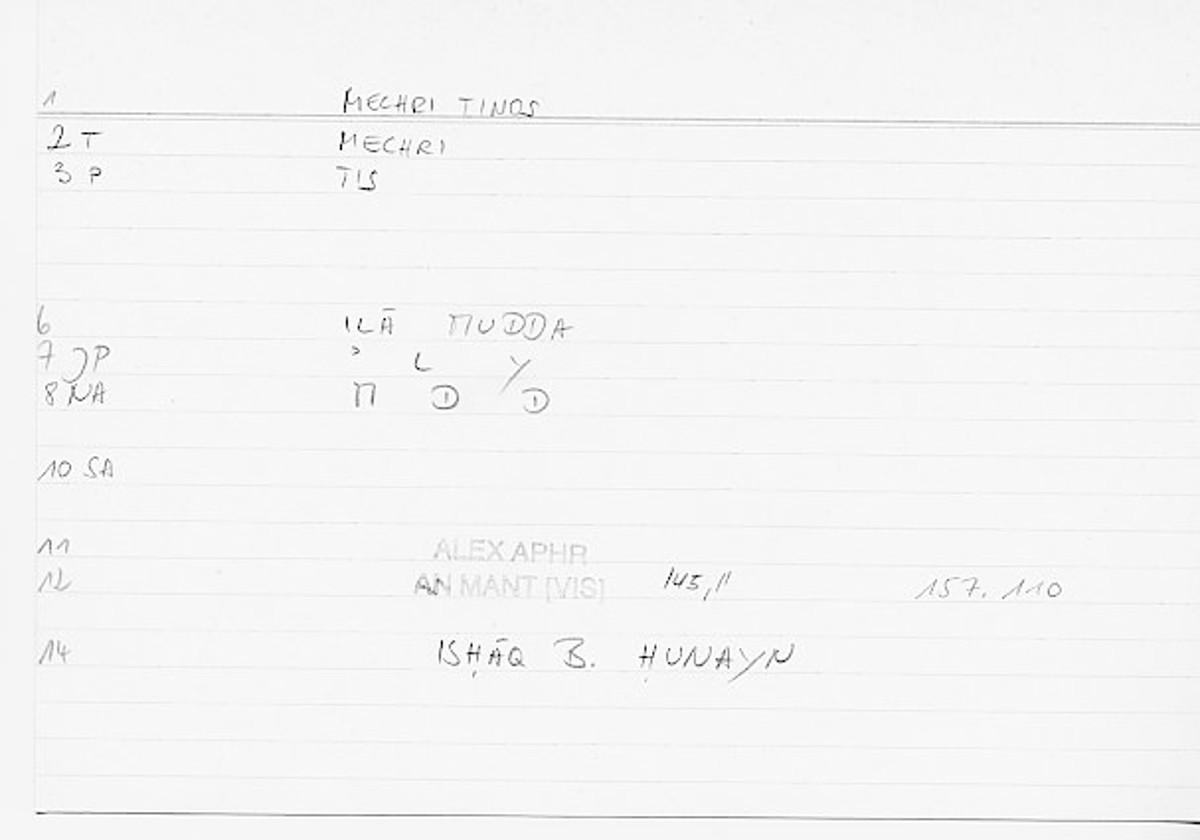 1 MECHRI TINOS
2 T MECHRI
3 P TIS
6 ILĀ MUDDA
7 JP ʾ L Y
8 NA M D D
10 SA
11 ALEX APHR
12 AN MANT [VIS] 145,11 157.110
14 ISḤĀQ B. ḤUNAYN